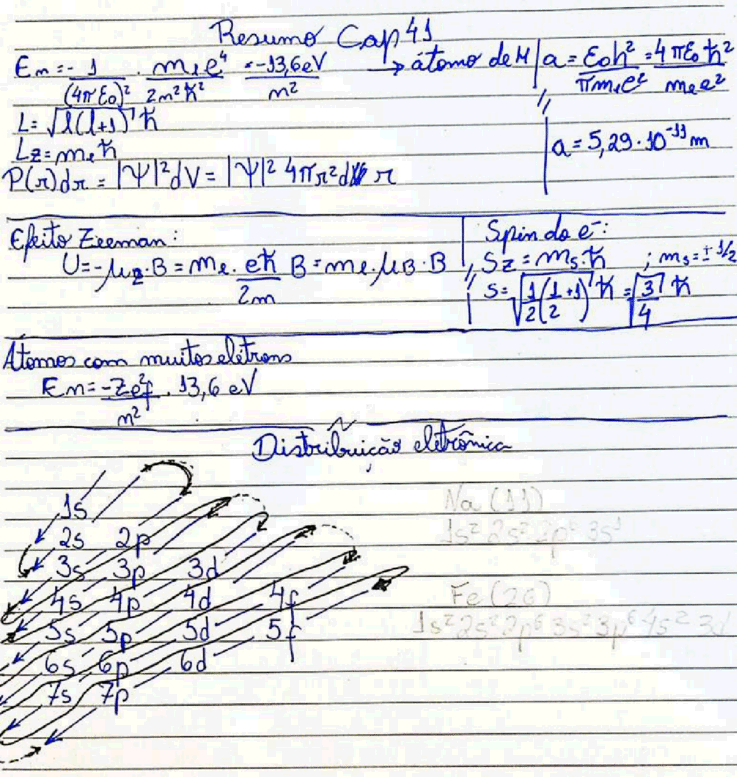 Resumo Cap 41
En = - 1/(4πε0)² · m_r e⁴/2n²ħ² = -13,6 eV/n² → átomo de H
a = ε0h²/πm_r e² = 4πε0ħ²/m_r e²
a = 5,29 · 10⁻¹¹ m
L = √l(l+1) ħ
Lz = m_l ħ
P(r)dr = |Ψ|² dV = |Ψ|² 4πr² dr
Efeito Zeeman:
U = -μz · B = m_l · eħ/2m B = m_l · μB · B
Spin do e⁻:
Sz = ms · ħ ; ms = ± 1/2
S = √1/2(1/2+1) ħ = √3/4 ħ
Átomos com muitos elétrons
En = -Z²ef/n² · 13,6 eV
Distribuição eletrônica
1s
2s 2p
3s 3p 3d
4s 4p 4d 4f
5s 5p 5d 5f
6s 6p 6d
7s 7p
Na (11)
1s² 2s² 2p⁶ 3s¹
Fe (26)
1s² 2s² 2p⁶ 3s² 3p⁶ 4s² 3d